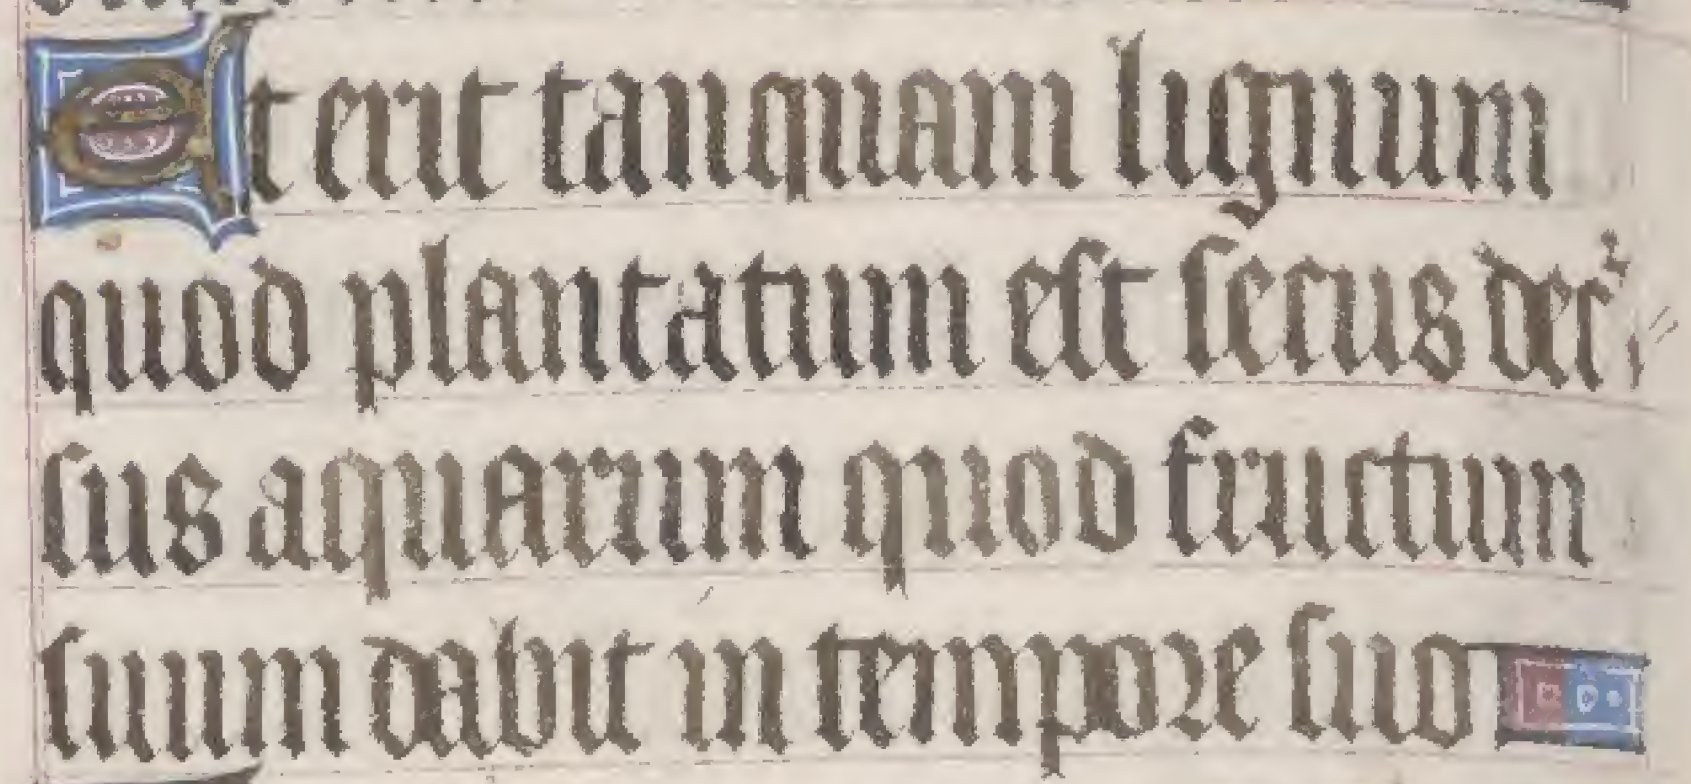 Et erit tanquam lignum
quod plantatum est secus decr
sus aquarum quod fructum
suum dabit in tempore suo